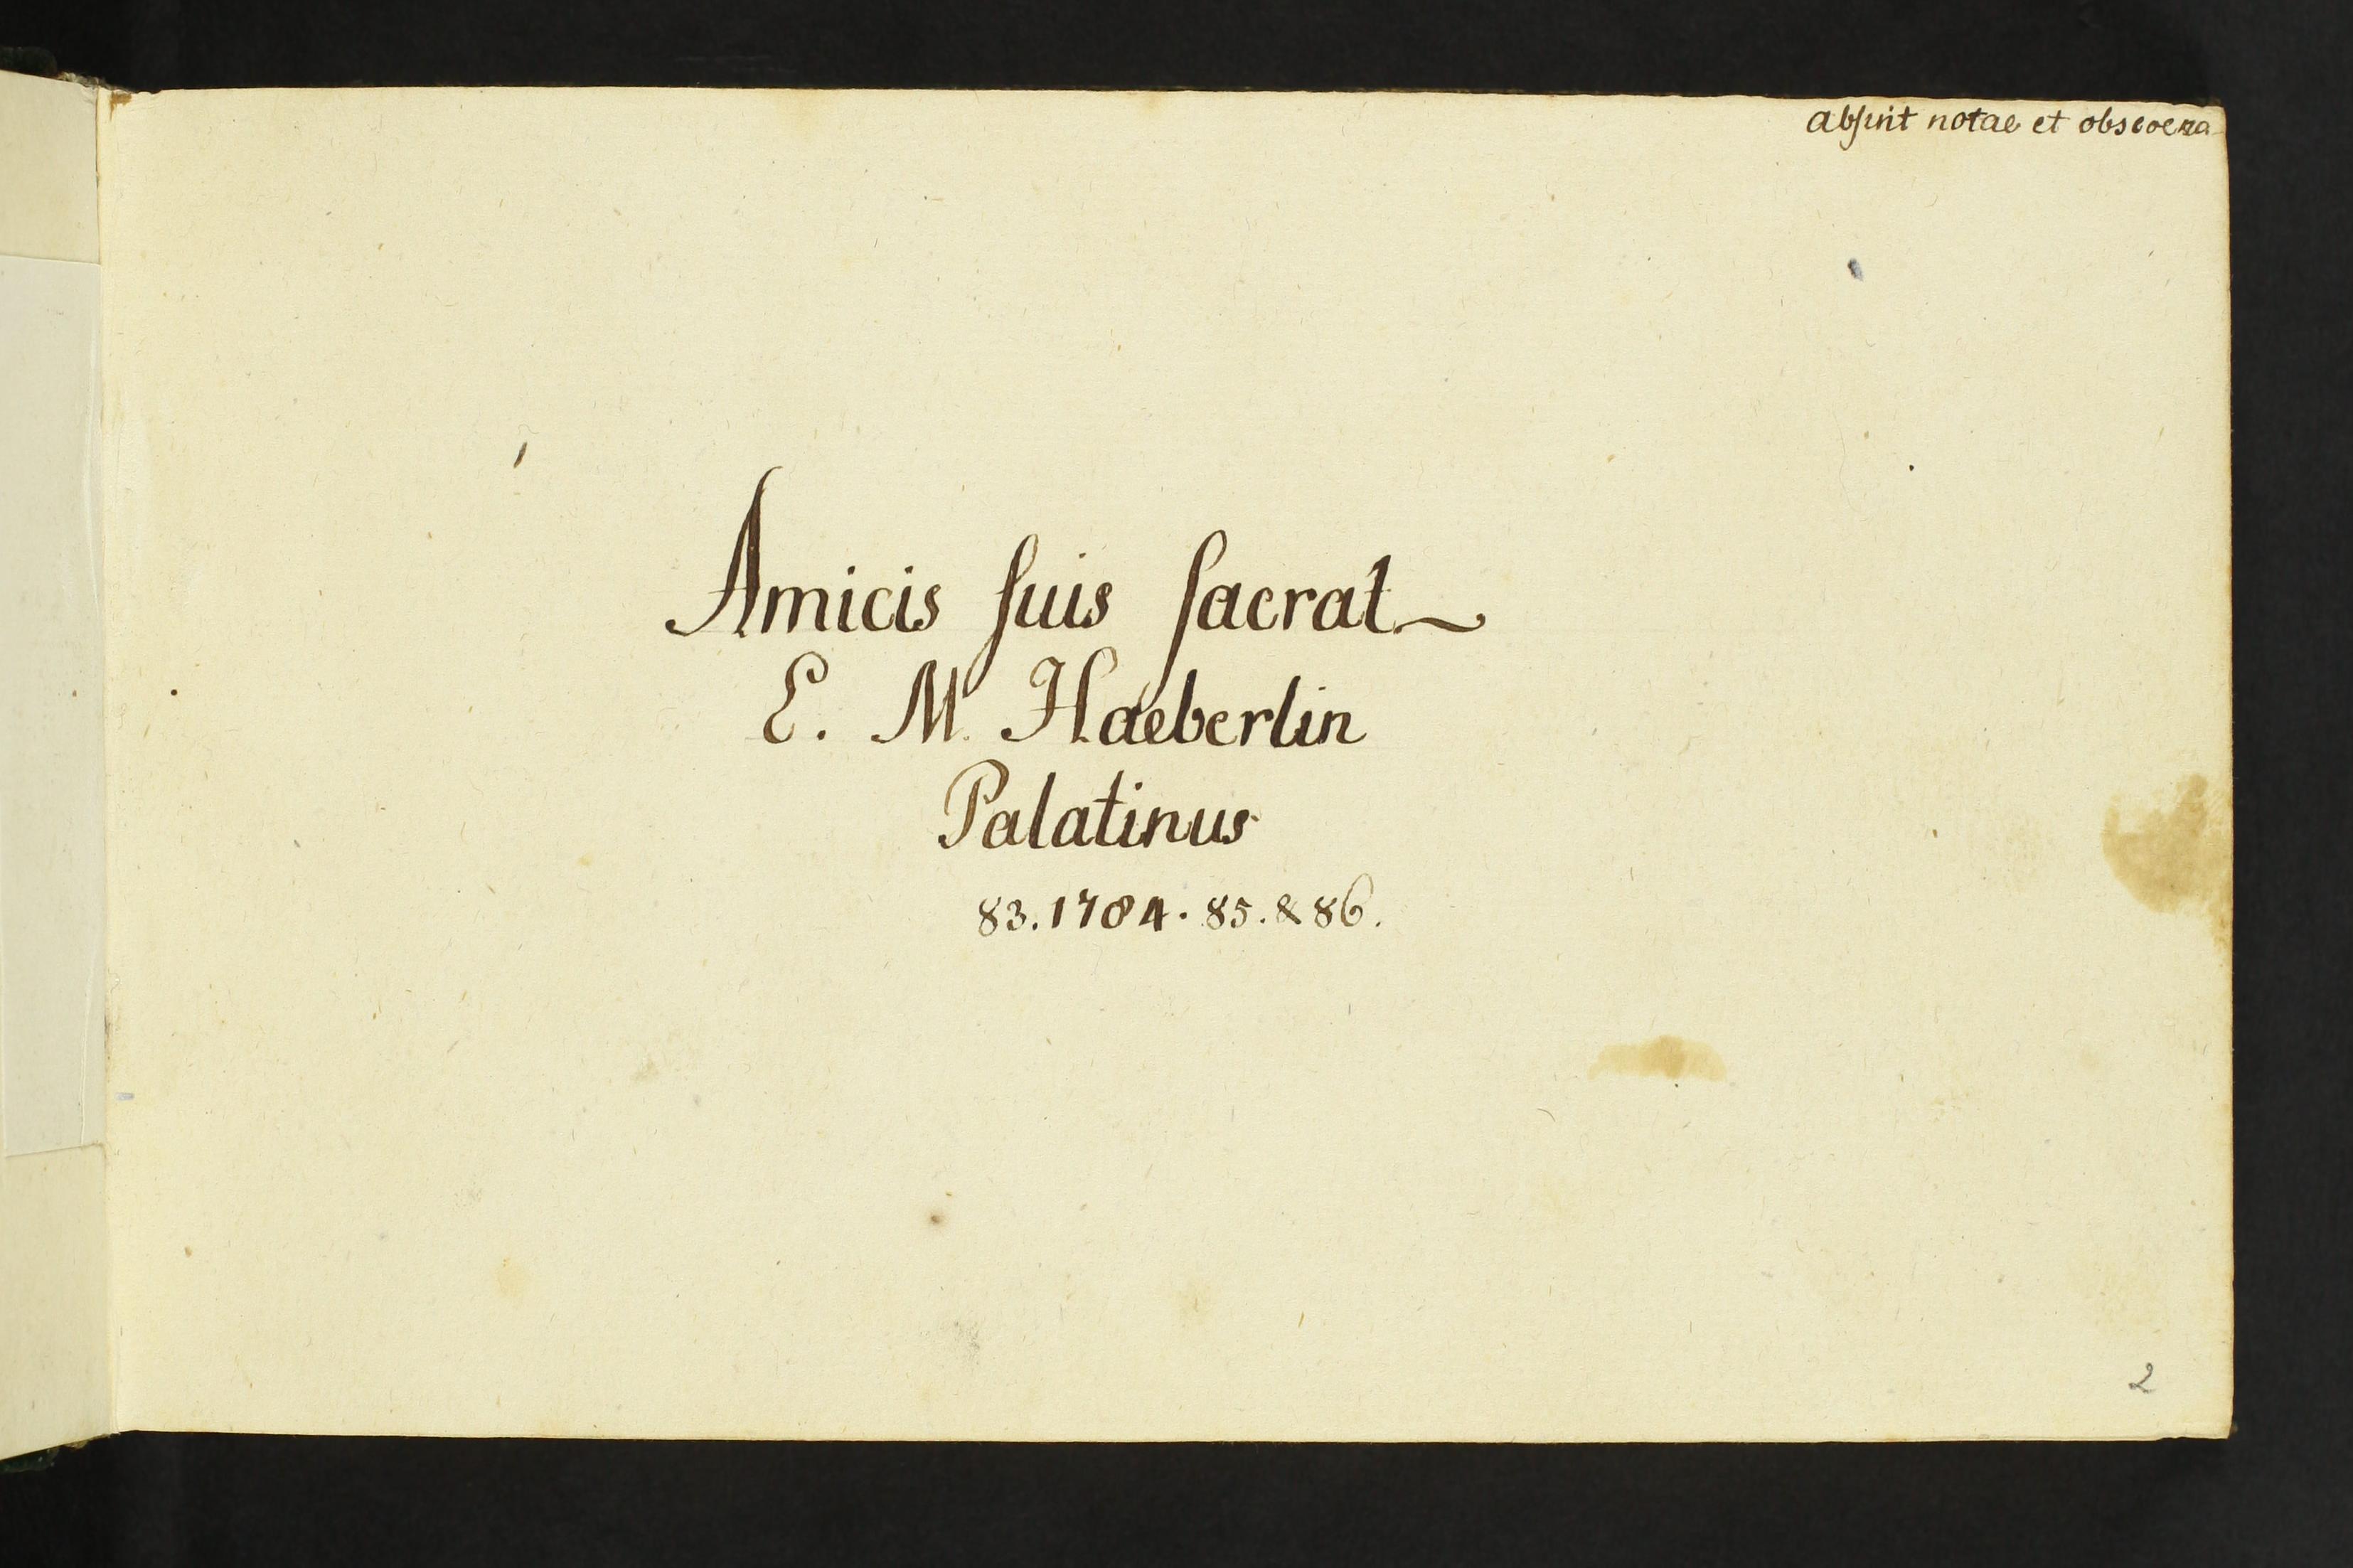 absint notae et obscoena
Amicis suis sacrat
E. M. Haeberlin
Palatinus
83. 1784. 85. & 86.
2